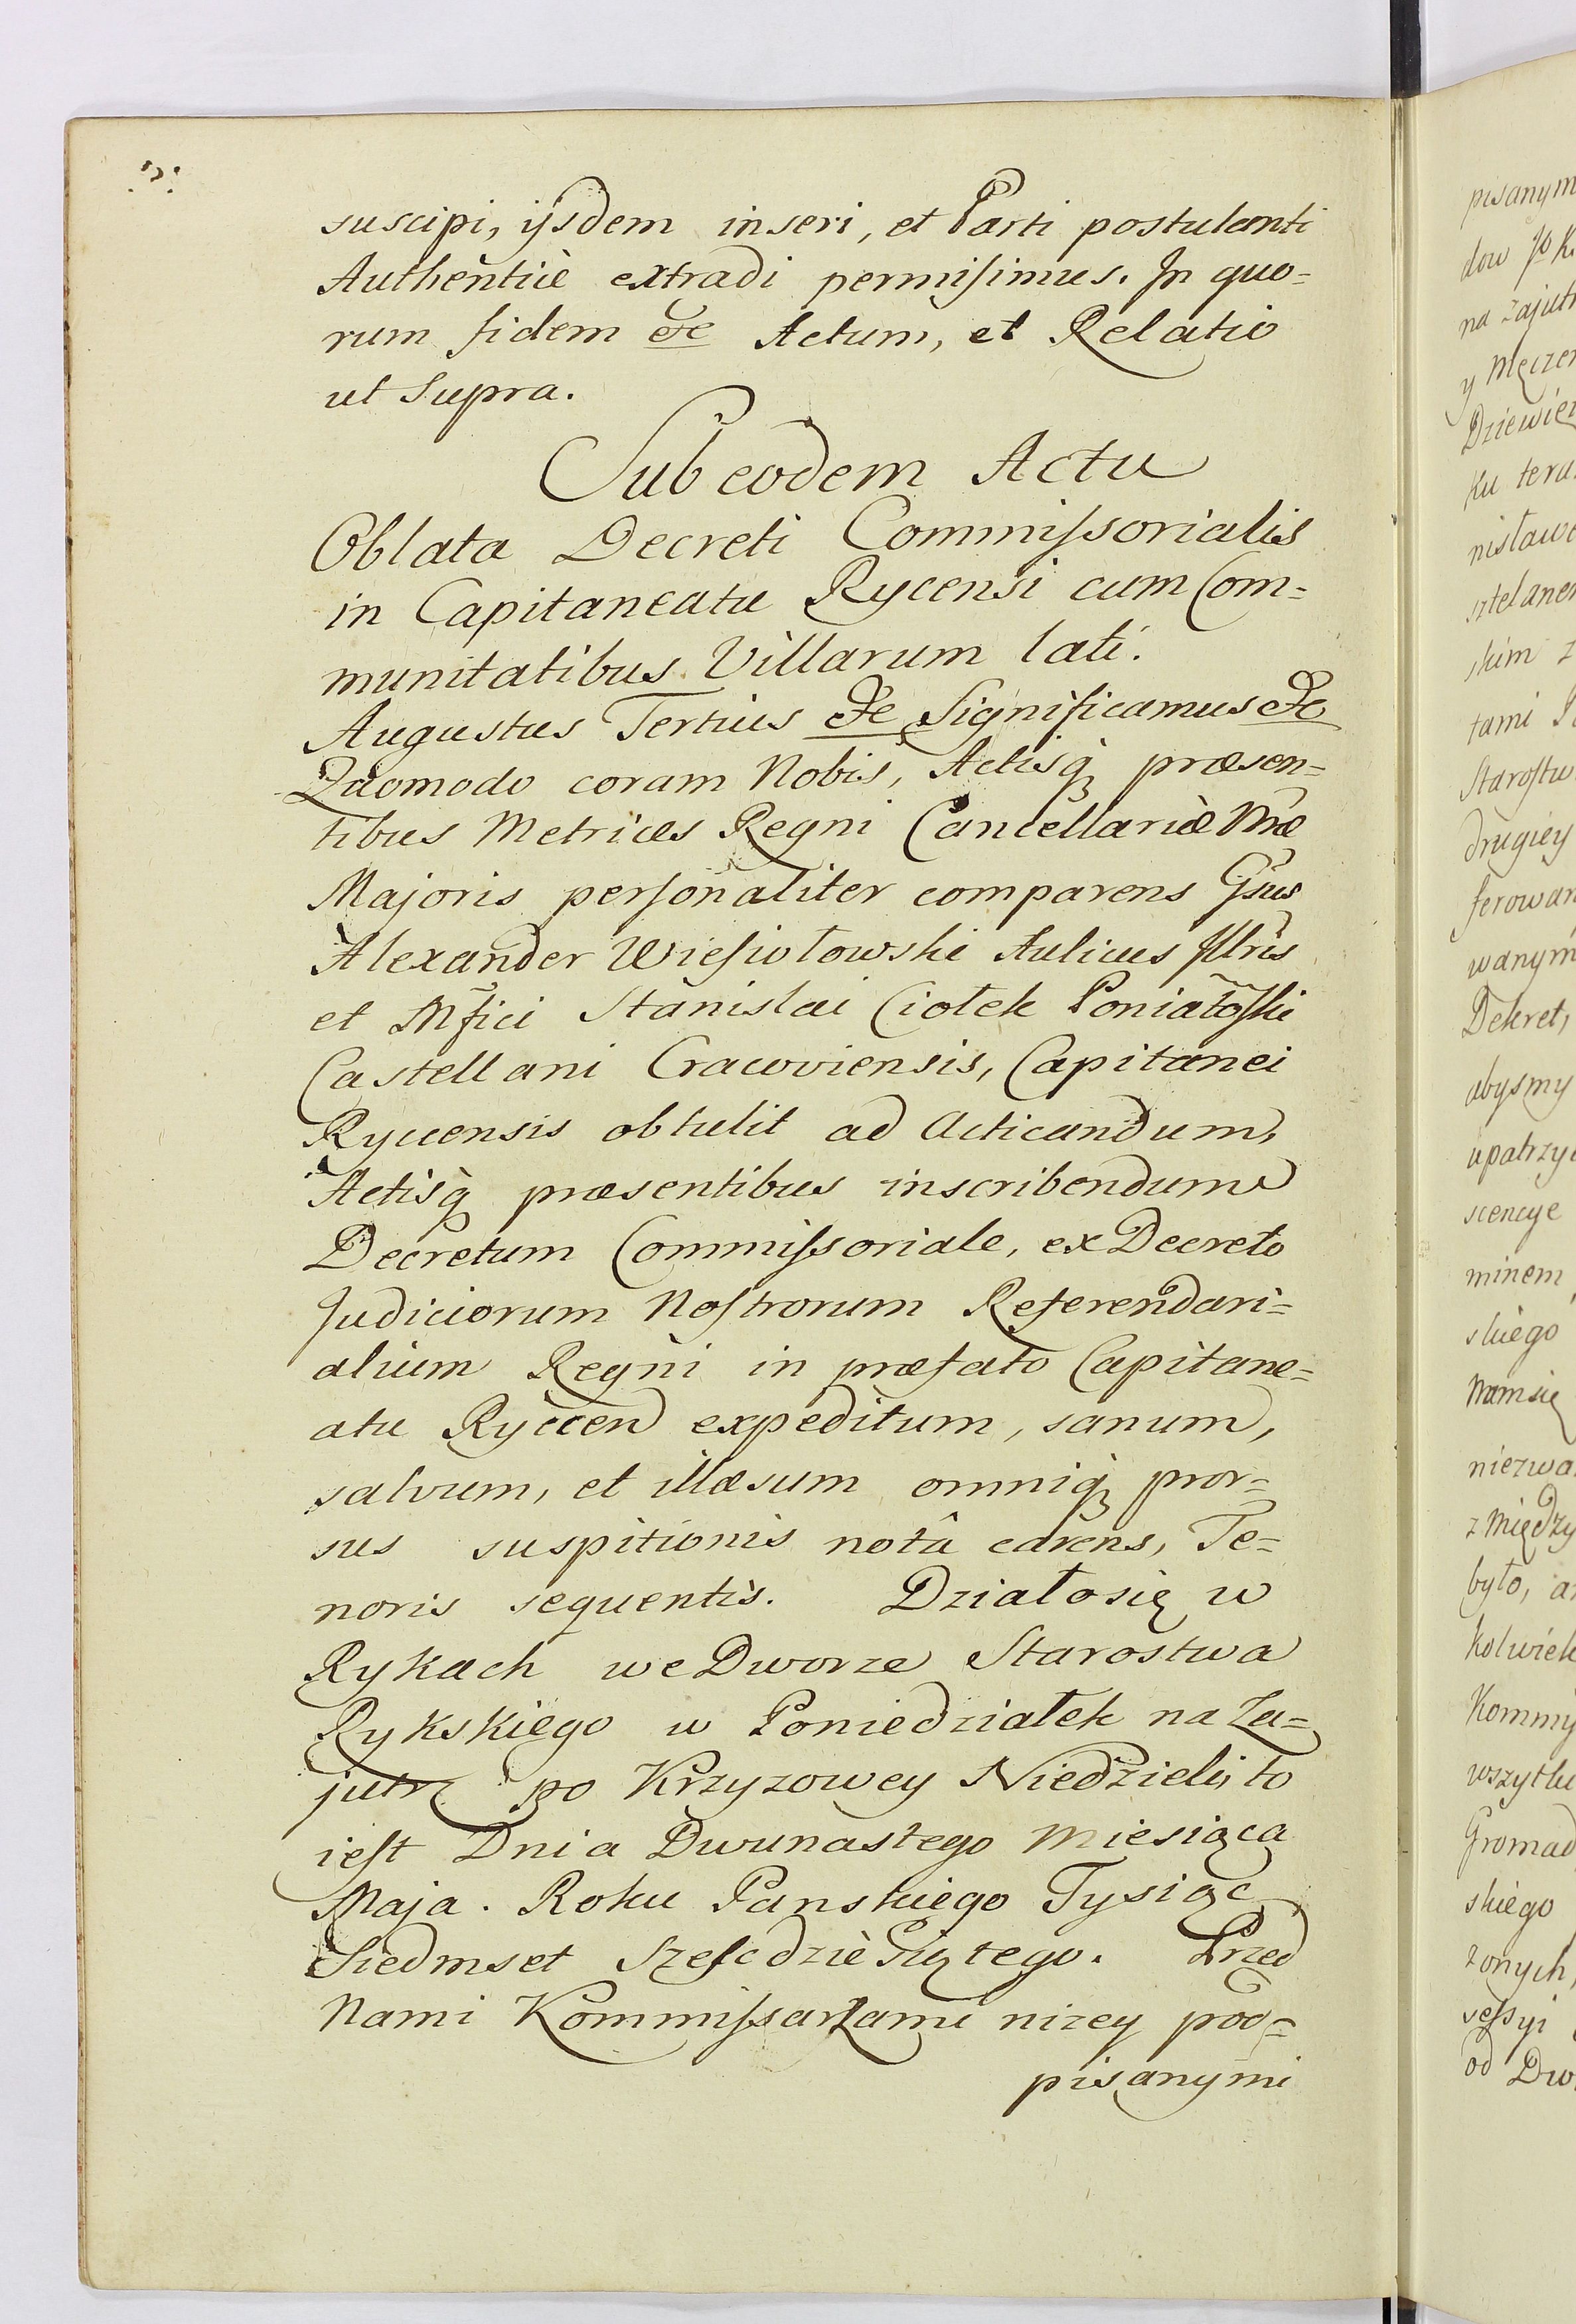 suscipi, ijsdem inseri, et Parti postulanti
Authenticè extradi permiſimus. Jn quo=
rum fidem etc Actum, et Relatio
ut Supra.
Sub eodem Actu
Oblata Decreti Commiſsorialis
in Capitaneatu Rycensi cum Com=
munitatibus Villarum lati.
Augustus Tertius etc Significamus etc
Quomodo coram Nobis, Actisq́ præsen=
tibus Metrices Regni Cancellariæ Nræ
Majoris perſonaliter comparens Gsus
Alexander Wieſiołowski Aulicus Jllris
et Mfici Stanislai Ciołek Poniatoſki
Castellani Cracoviensis, Capitanei
Ryccensis obtulit ad Acticandum,
Actisq́ præsentibus inscribendum
Decretum Commiſsoriale, ex Decreto
Judiciorum Noſtrorum Referendari=
alium Regni in præfato Capitane=
atu Ryccen expeditum, sanum,
salvum, et illæsum omniq́ pror=
sus suspitionis notâ carens, Te=
noris sequentis. Działo się w
Rykach we Dworze Starostwa
Rykskiego w Poniedziałek na Za=
jutrz po Krzyzowey Niedzieli, to
ieſt Dnia Dwunastego Miesiąca
Maja. Roku Panskiego Tysiąc
Siedmset Szeſcdzieſiątego. Przed
Nami Kommiſsarzami nizey pod=
pisanymi
pisanym
dow
na zajutr
y Męczen
Dziewię
ku tera
nisławo
sztelanem
skim z
tami
Staroſtw
drugiey
ferowan
wanym
Dekret,
abysmy
upatrzy
scencye
minem
skiego
Nam się
niezwa
z między
było, a
kolwiek
Kommi
wszytki
Gromad
skiego
zonych,
seſsyi
od Dw